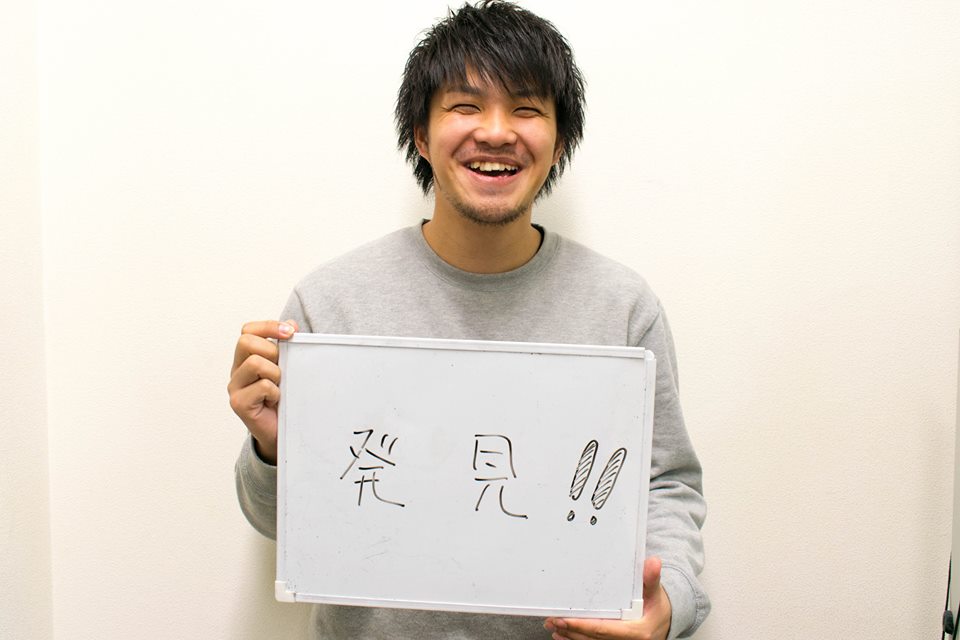 発見!!